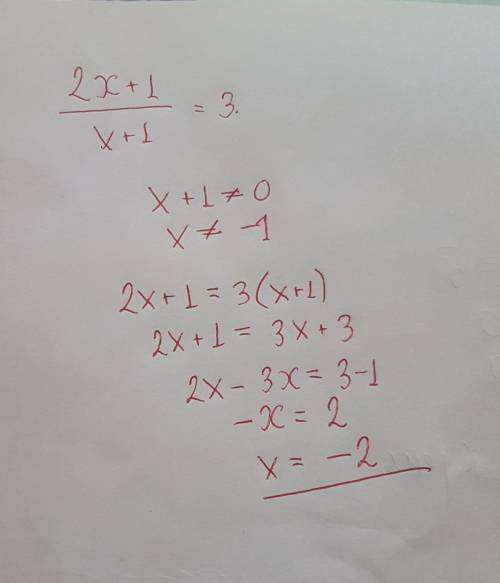 2x+1
x+1 = 3.
x+1≠0
x≠-1
2x+1=3(x+1)
2x+1=3x+3
2x-3x=3-1
-x=2
x=-2